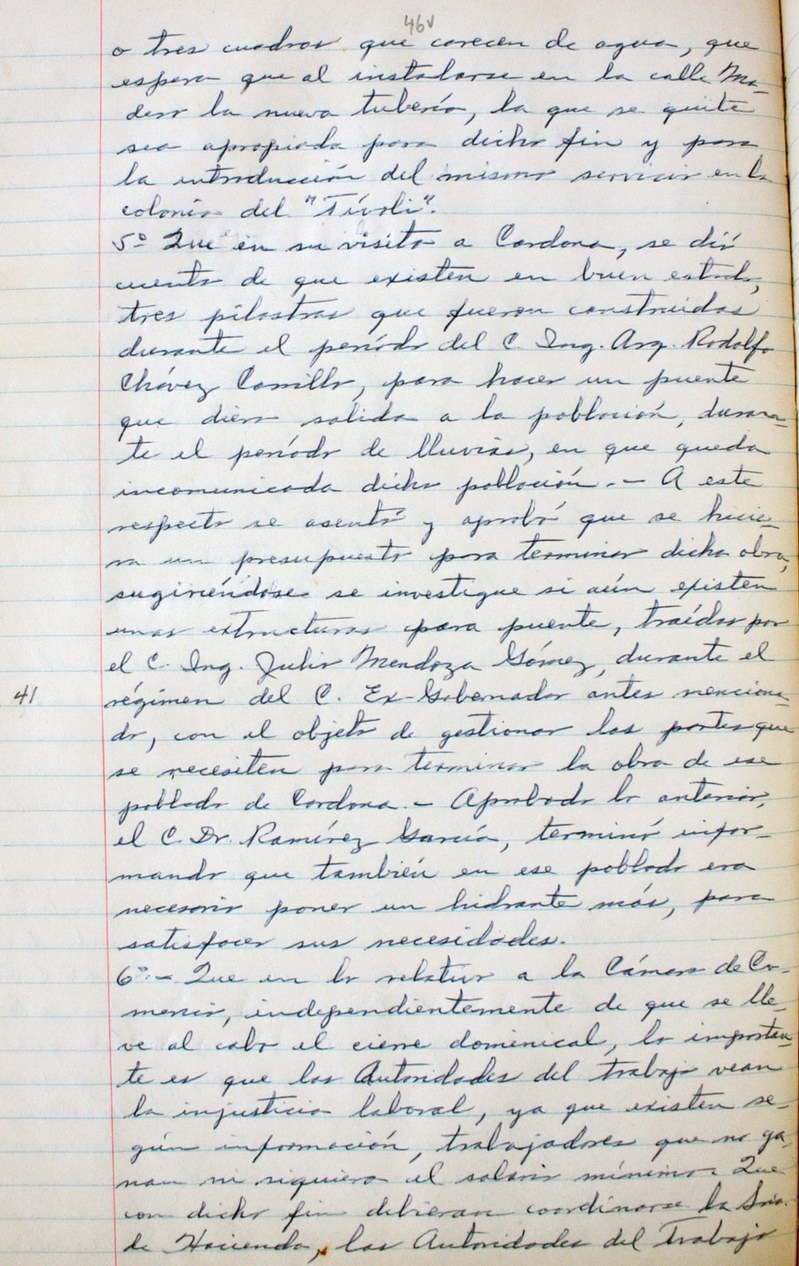 46v
o tres cuadras que carecen de agua, que
espera que al instalarse en la calle Ma-
dero la nueva tubería, la que se quite
sea apropiada para dicho fin y para
la introducción del mismo servicio en la
colonia del "Tívoli".
5º Que en su visita a Cardona, se dió
cuenta de que existen en buen estado,
tres pilastras que fueron construidas
durante el período del C. Ing. Arq. Rodolfo
Chávez Carrillo, para hacer un puente
que diera salida a la población, duran-
te el período de lluvias, en que queda
incomunicada dicha población.- A este
respecto se asentó y aprobó que se hicie-
ra un presupuesto para terminar dicha obra,
sugiriéndose se investigue si aún existen
unas estructuras para puente, traídas por
el C. Ing. Julio Mendoza Gómez, durante el
41
régimen del C. Ex-Gobernador antes menciona-
do, con el objeto de gestionar las partes que
se necesiten para terminar la obra de ese
poblado de Cardona.- Aprobado lo anterior,
el C. Dr. Ramírez García, terminó infor-
mando que también en ese poblado era
necesario poner un hidrante más, para
satisfacer sus necesidades.
6º.- Que en lo relativo a la Cámara de Co-
mercio, independientemente de que se lle-
ve al cabo el cierre dominical, lo importan-
te es que las Autoridades del trabajo vean
la injusticia laboral, ya que existen se-
gún información, trabajadores que no ga-
nan ni siquiera el salario mínimo. Que
con dicho fin debieran coordinarse la Sria.
de Hacienda, las Autoridades del Trabajo